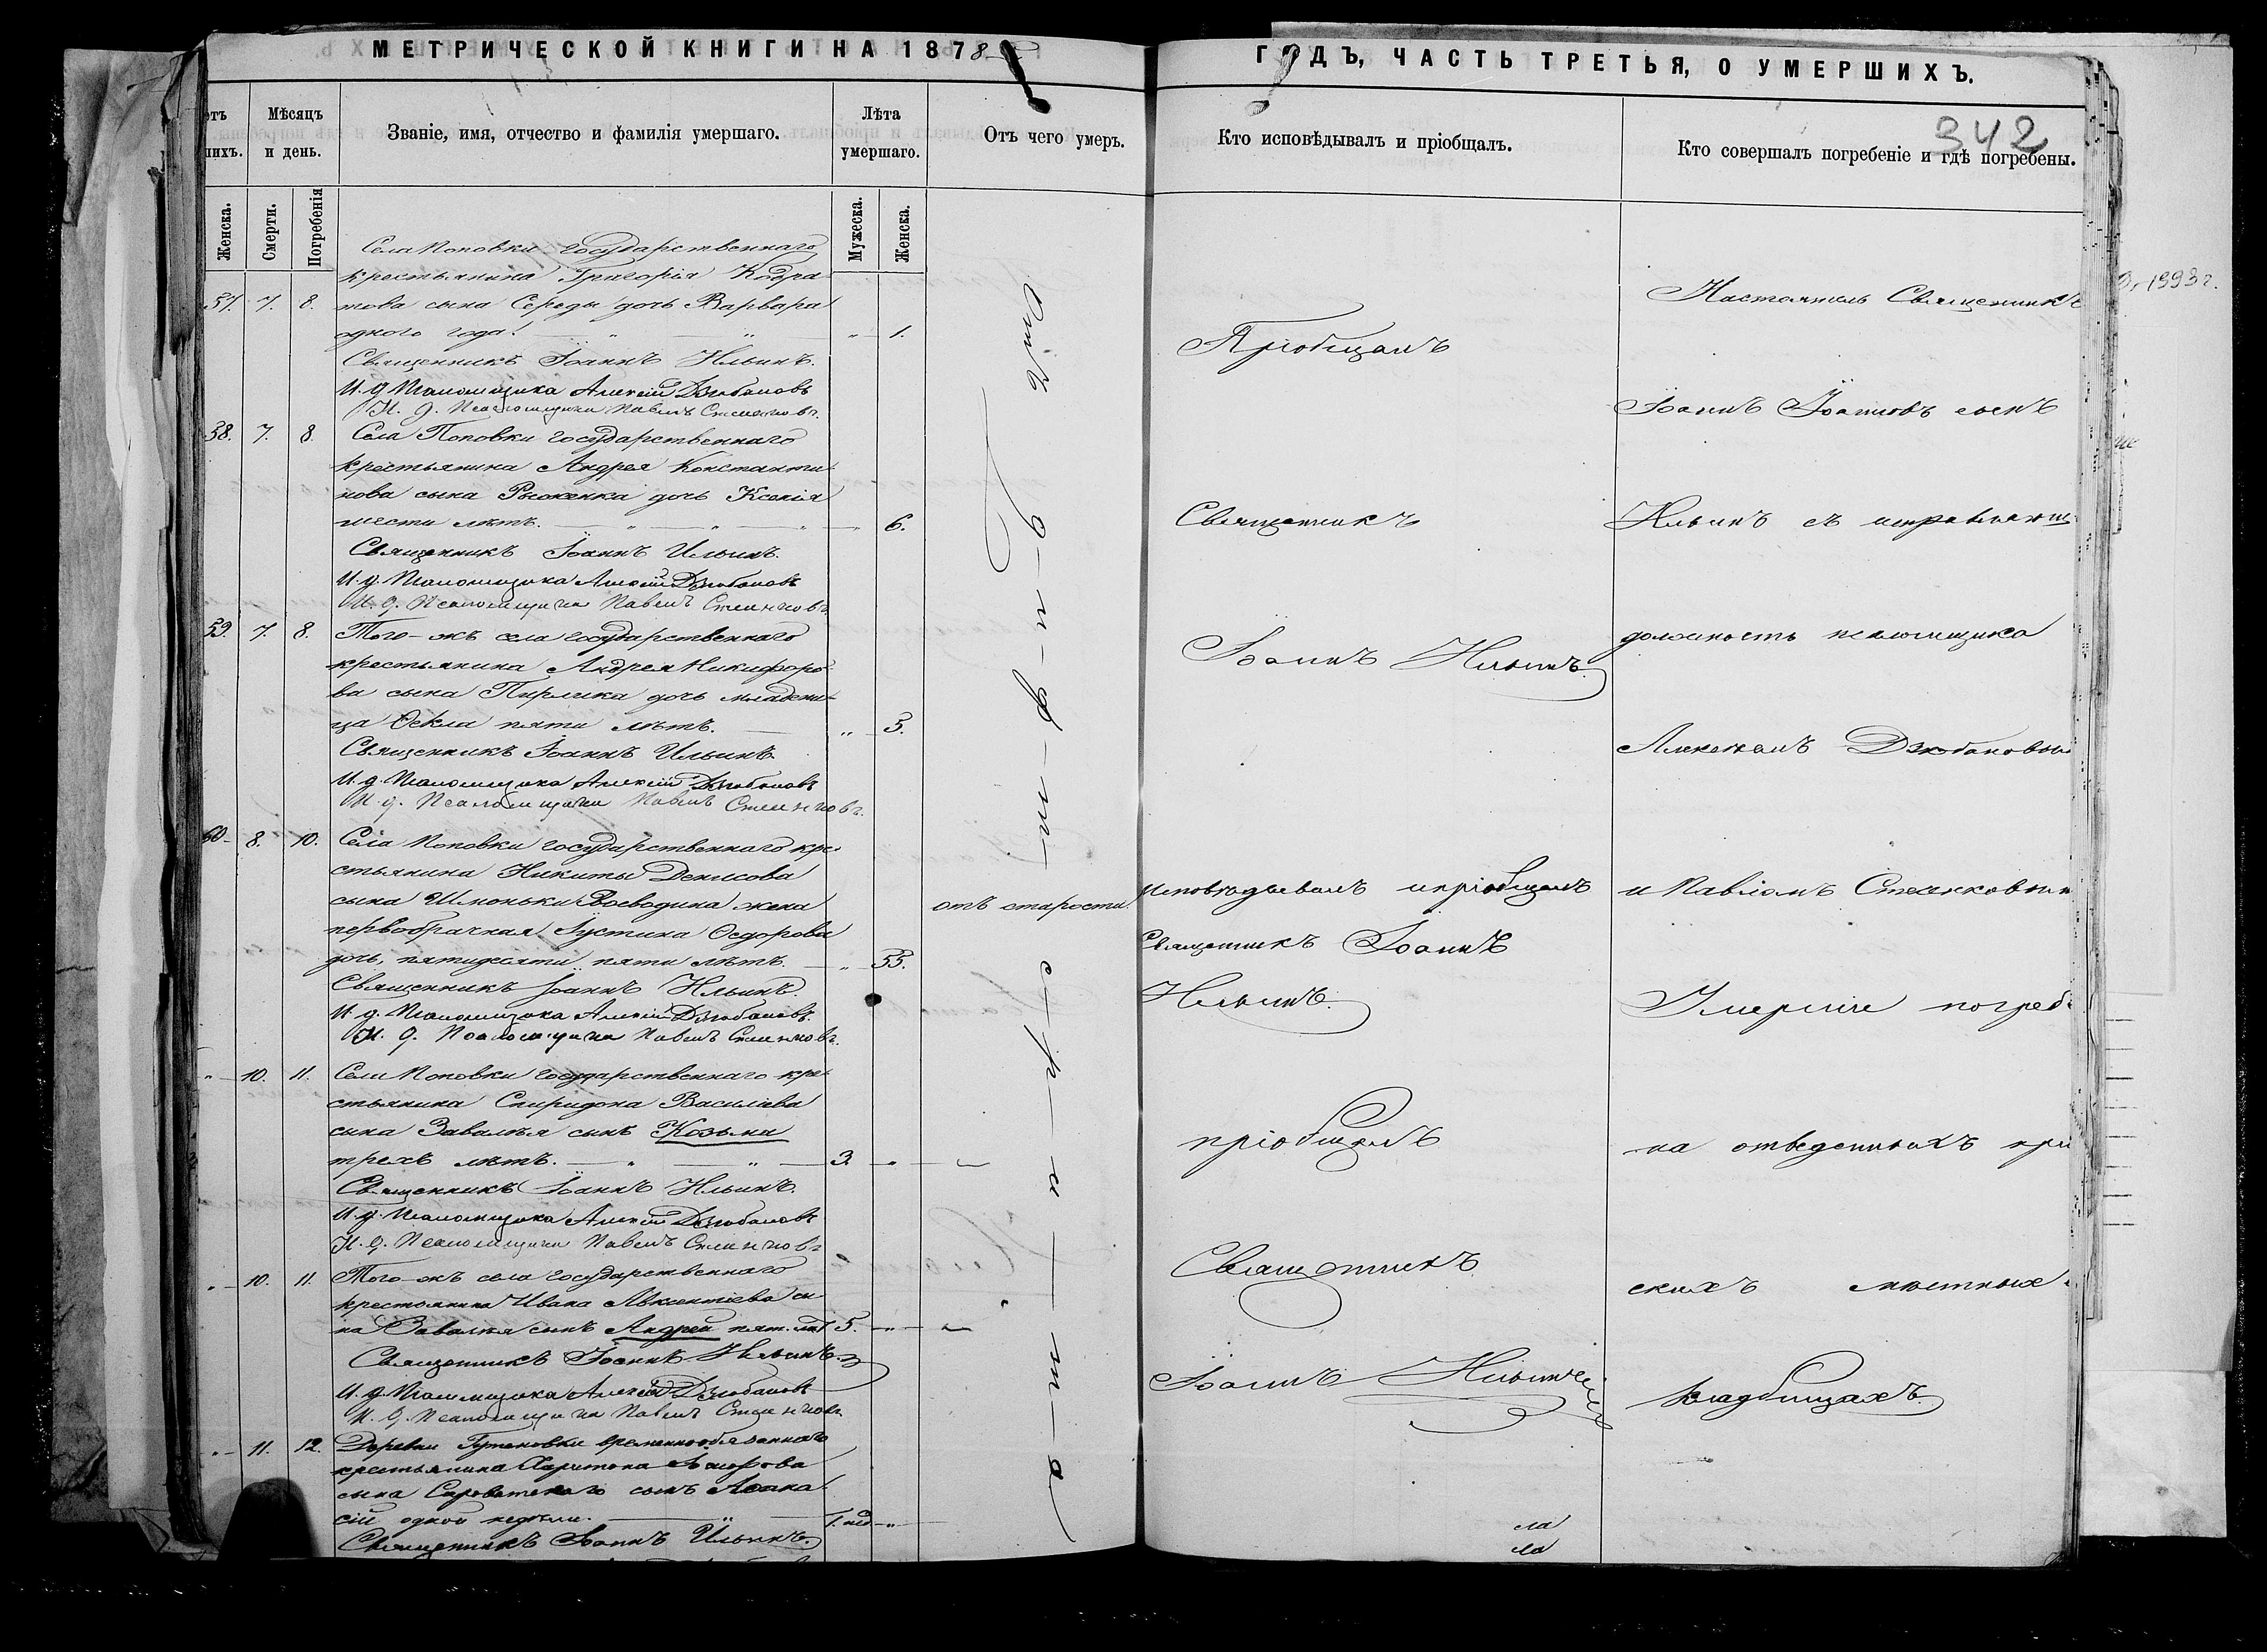 МЕТРИЧЕСКОЙ КНИГИ НА 1878
ГОДЪ, ЧАСТЬ ТРЕТЬЯ, О УМЕРШИХЪ.
342
Мѣсяцъ и день.
Званіе, имя, отчество и фамилія умершаго.
Лѣта умершаго.
Отъ чего умеръ.
Кто исповѣдывалъ и пріобщалъ.
Кто совершалъ погребеніе и гдѣ погребены.
Женска.
Смерти.
Погребенія
Мужеска.
Женска.
Села Поповки государственнаго
крестьянина Григорія Кодра
57. 7. 8. това сына Середы дочь Варвара
одного года. 1.
Священникъ Іоаннъ Ильинъ.
И. д. Псаломщика Алексѣй Дзюбановъ
И. д. Псаломщика Павелъ
58. 7. 8. Села Поповки государственнаго
крестьянина Андрея Константи
нова сына дочь Ксенія
шести лѣтъ. 6.
Священникъ Іоаннъ Ильинъ.
И. д. Псаломщика Алексѣй Дзюбановъ
И. д. Псаломщика Павелъ
59. 7. 8. Того-жъ села государственнаго
крестьянина Андрея Никифоро
ва сына дочь младени
ца Ѳекла пяти лѣтъ. 5.
Священникъ Іоаннъ Ильинъ.
И. д. Псаломщика Алексѣй Дзюбановъ
И. д. Псаломщика Павелъ
60 8. 10. Села Поповки государственнаго кре
стьянина Никиты Денисова
сына Шмоньки Воеводина жена
первобрачная Іустина Ѳедорова
дочь, пятидесяти пяти лѣтъ. 55.
Священникъ Іоаннъ Ильинъ.
И. д. Псаломщика Алексѣй Дзюбановъ.
И. д. Псаломщика Павелъ
10. 11. Села Поповки государственнаго кре
стьянина Спиридона Василіева
сына Завалѣя сынъ Козьма
трехъ лѣтъ. 3.
Священникъ Іоаннъ Ильинъ.
И. д. Псаломщика Алексѣй Дзюбановъ
И. д. Псаломщика Павелъ
10. 11. Того-жъ села государственнаго
крестьянина Ивана Авксентіева сы
на Завалѣя сынъ Андрей пят. лѣт 5.
Священникъ Іоаннъ Ильинъ.
И. д. Псаломщика Алексѣй Дзюбановъ
И. д. Псаломщика Павелъ
11. 12. Деревни временнообязаннаго
крестьянина Харитона
сына Сироватскаго сынъ Аѳана
сій одной недѣли. 1. нед
Священникъ Іоаннъ Ильинъ.
Отъ
д-и-ф-т-е-р-и-т-а
отъ старости
Пріобщалъ
Священникъ
Іоаннъ Ильинъ.
исповѣдывалъ и пріобщалъ
Священникъ Іоаннъ
Ильинъ.
пріобщалъ
Священникъ
Іоаннъ Ильинъ
Настоятель Священникъ
Іоаннъ Іоанновъ сынъ
Ильинъ съ исправляющ
должность псаломщика
Алексѣемъ Дзюбановым
и Павломъ
Умершіе погреб
на отведенныхъ при
скихъ мѣстныхъ
кладбищахъ.
1993 г.